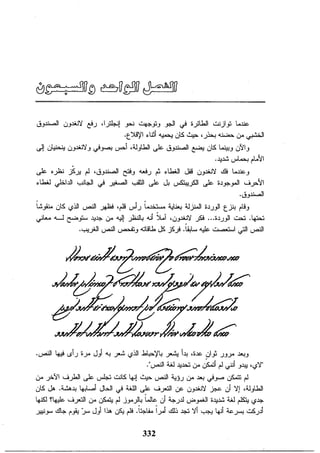 الفصل الواحد والسبعون
عندما توازنت الطائرة في الجو وتوجهت نحو إنجلترا، رفع لانغدون الصندوق
الخشبي من حضنه بحذر، حيث كان يحميه أثناء الإقلاع.
والآن وبينما كان يضع الصندوق على الطاولة، أحس بصوفي ولانغدون ينحنيان إلى
الأمام بحماس شديد.
وعندما فك لانغدون قفل الغطاء ثم رفعه وفتح الصندوق، لم يركّز نظره على
الأحرف الموجودة على الكريبتكس بل على الثقب الصغير في الجانب الداخلي لغطاء
الصندوق.
وقام بنزع الوردة المنزلة بعناية مستخدماً رأس قلم، فظهر النص الذي كان منقوشاً
تحتها. تحت الوردة... فكر لانغدون، آملاً أنه بالنظر إليه من جديد ستوضح لـــه معاني
النص التي استعصت عليه سابقاً. فركز كل طاقاته وتفحص النص الغريب.
وبعد مرور ثوانٍ عدة، بدأ يشعر بالإحباط الذي شعر به أول مرة رأى فيها النص.
"لاي، يبدو أنني لم أتمكن من تحديد لغة النص".
لم تتمكن صوفي بعد من رؤية النص حيث إنها كانت تجلس على الطرف الآخر من
الطاولة، إلا أن عجز لانغدون عن التعرف على اللغة في الحال أصابها بدهشة. هل كان
جدي يتكلم لغة شديدة الغموض لدرجة أن عالماً بالرموز لم يتمكن من التعرف عليها؟ لكنها
أدركت بسرعة أنها يجب ألا تجد ذلك أمراً مفاجئاً. فلم يكن هذا أول سر يقوم جاك سونيير
332